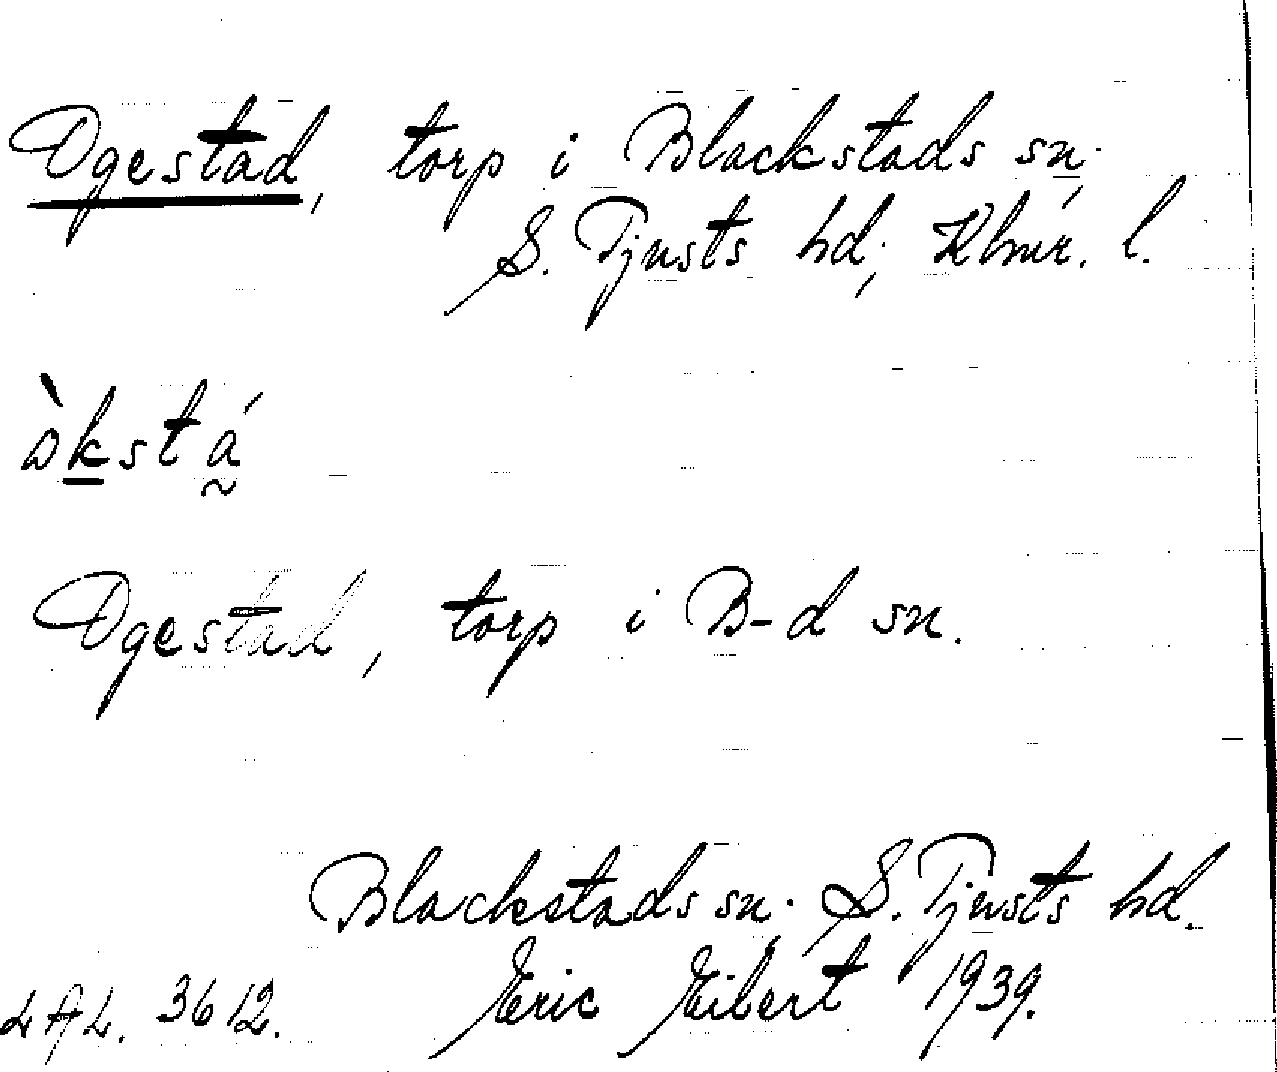 Ogestad, torp i Blackstads sn.
S. Tjusts hd, Klmr. l.
òkstá
Ogestad, torp i B-d sn.
Blackstads sn. S. Tjusts hd.
LAL. 3612. Eric Eibert 1939.